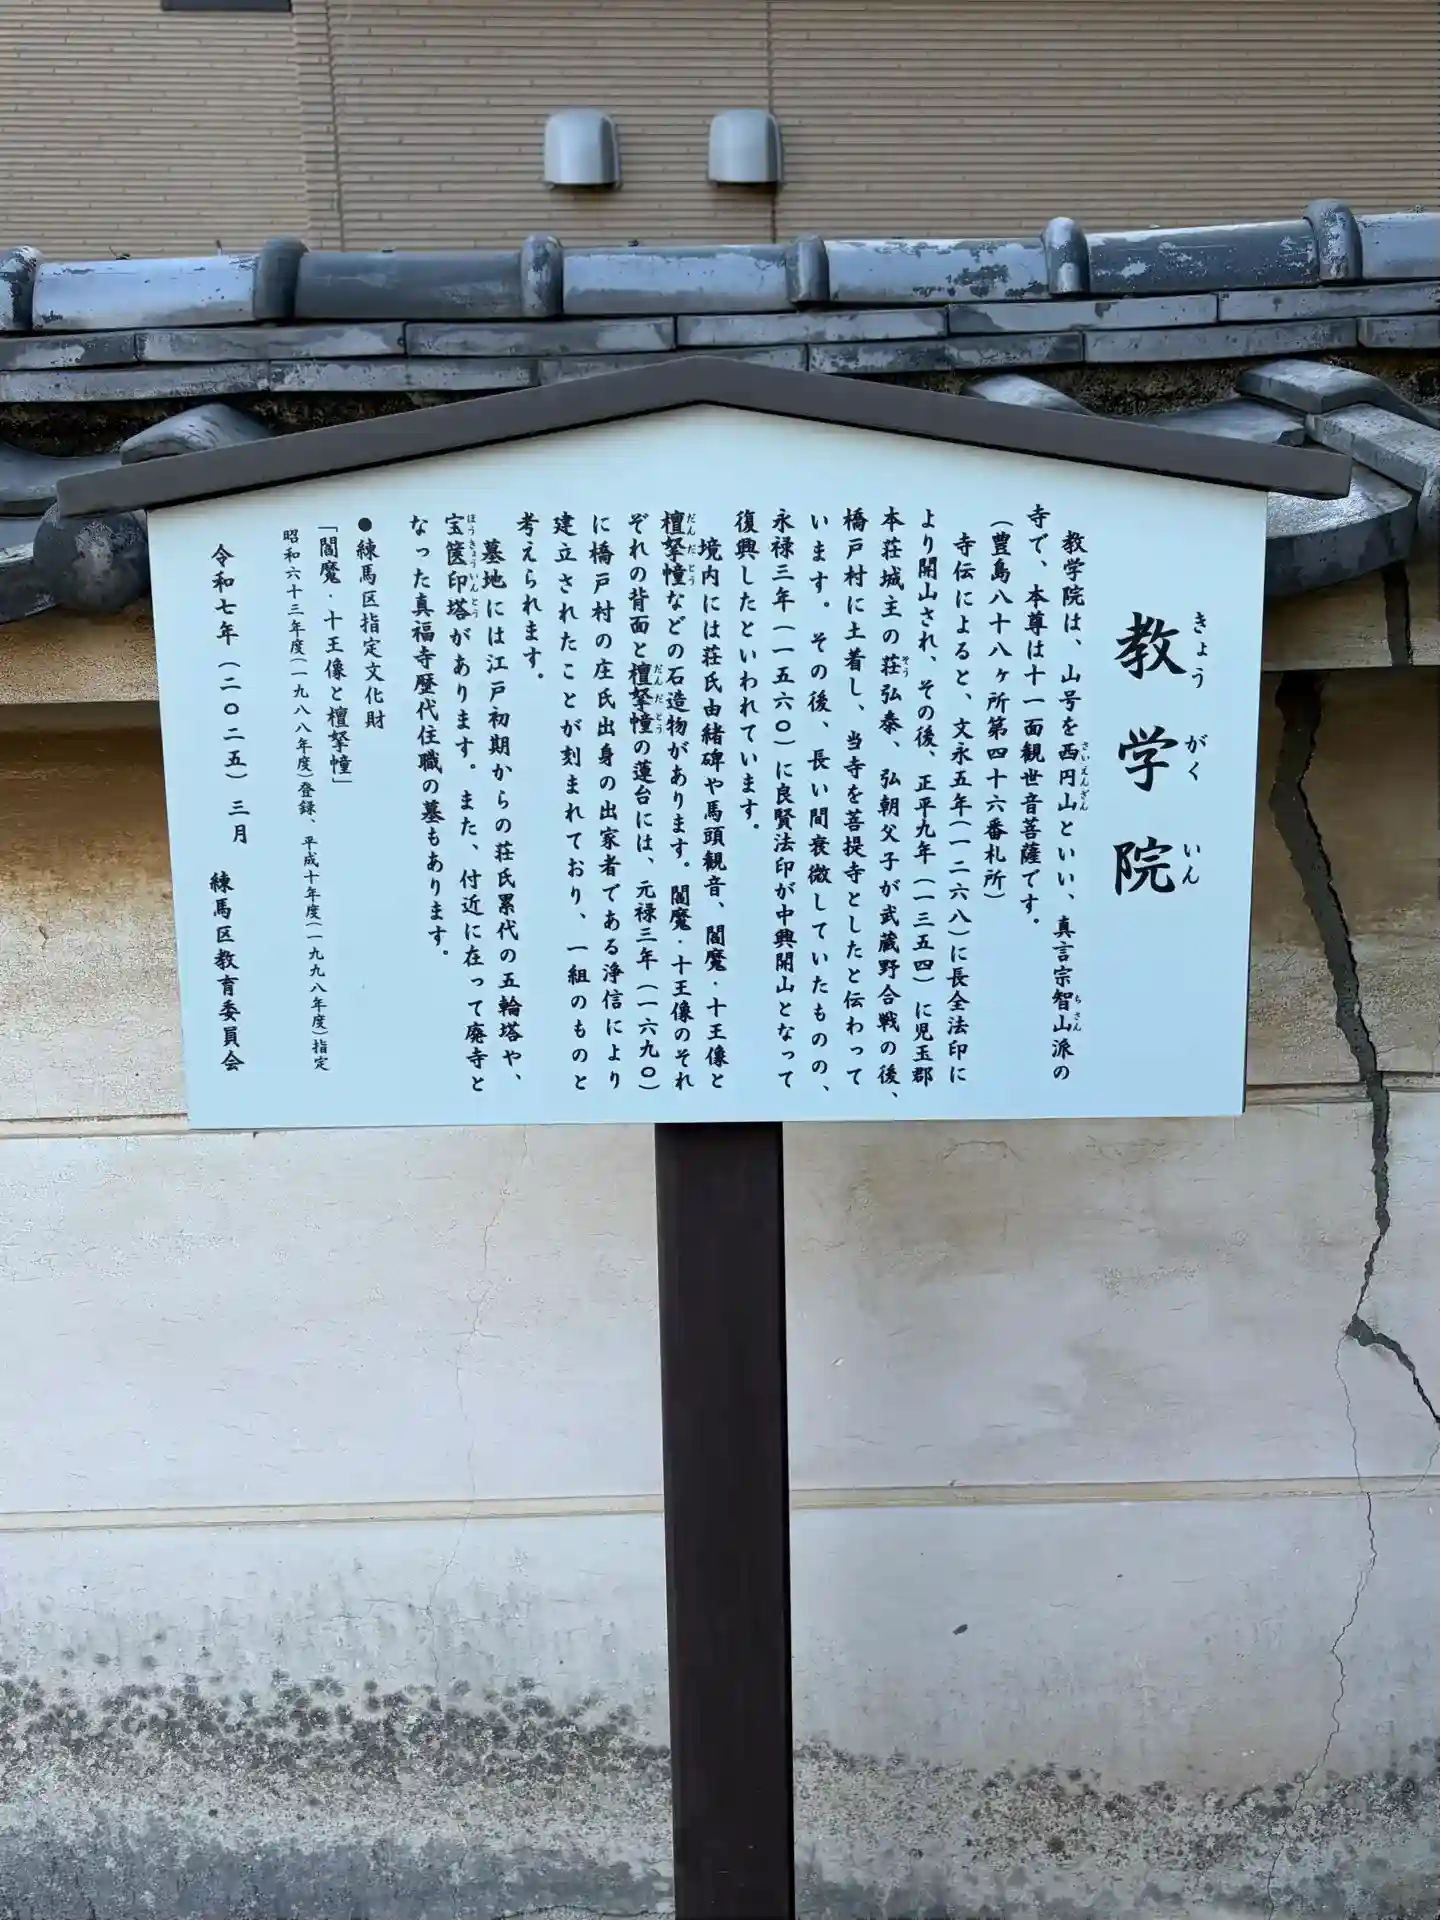 教学院
きょうがくいん
教学院は、山号を西円山といい、真言宗智山派の
さいえんざん
ちさん
寺で、本尊は十一面観世音菩薩です。
（豊島八十八ヶ所第四十六番札所）
寺伝によると、文永五年（一二六八）に長全法印に
より開山され、その後、正平九年（一三五四）に児玉郡
本荘城主の荘弘泰、弘朝父子が武蔵野合戦の後、
そう
橋戸村に土着し、当寺を菩提寺としたと伝わって
います。その後、長い間衰微していたものの、
永禄三年（一五六〇）に良賢法印が中興開山となって
復興したといわれています。
境内には荘氏由緒碑や馬頭観音、閻魔・十王像と
檀拏幢などの石造物があります。閻魔・十王像のそれ
だんだとう
ぞれの背面と檀拏幢の蓮台には、元禄三年（一六九〇）
だんだとう
に橋戸村の庄氏出身の出家者である浄信により
建立されたことが刻まれており、一組のものと
考えられます。
墓地には江戸初期からの荘氏累代の五輪塔や、
宝篋印塔があります。また、付近に在って廃寺と
ほうきょういんとう
なった真福寺歴代住職の墓もあります。
●練馬区指定文化財
「閻魔・十王像と檀拏幢」
昭和六十三年度（一九八八年度）登録、平成十年度（一九九八年度）指定
令和七年（二〇二五）三月　練馬区教育委員会